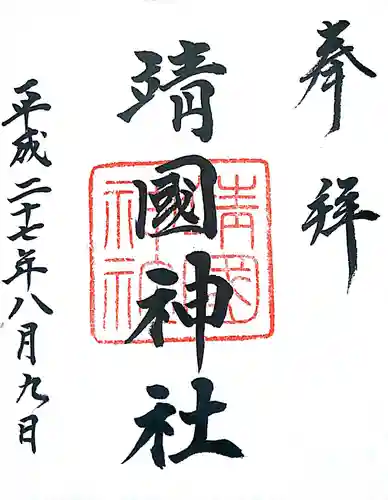 奉拜
靖國神社
平成二十七年八月九日
靖國
神社